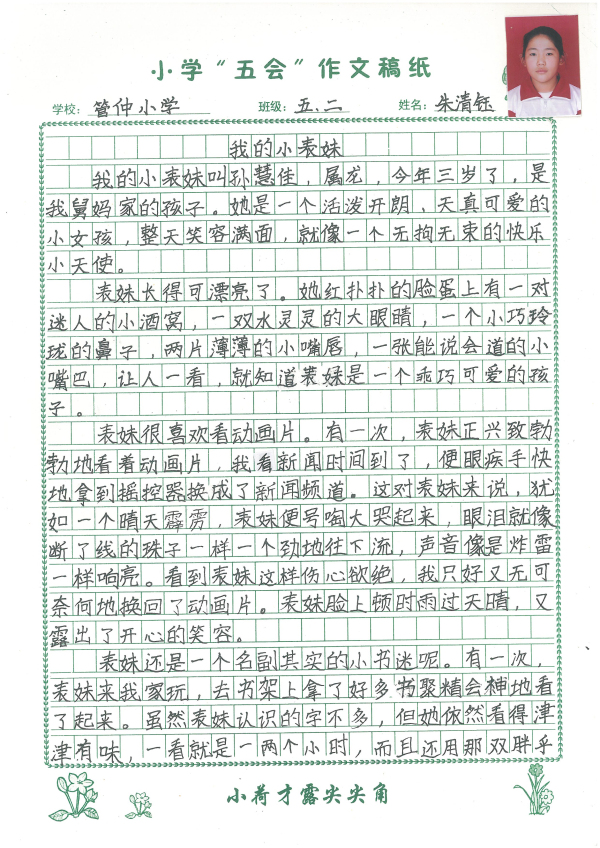 小学“五会”作文稿纸
学校：管仲小学 班级：五.二 姓名：朱清钰
我的小表妹
我的小表妹叫孙慧佳，属龙，今年三岁了，是
我舅妈家的孩子。她是一个活泼开朗、天真可爱的
小女孩，整天笑容满面，就像一个无拘无束的快乐
小天使。
表妹长得可漂亮了。她红扑扑的脸蛋上有一对
迷人的小酒窝，一双水灵灵的大眼睛，一个小巧玲
珑的鼻子，两片薄薄的小嘴唇，一张能说会道的小
嘴巴，让人一看，就知道表妹是一个乖巧可爱的孩
子。
表妹很喜欢看动画片。有一次，表妹正兴致勃
勃地看着动画片，我看新闻时间到了，便眼疾手快
地拿到摇控器换成了新闻频道。这对表妹来说，犹
如一个晴天霹雳，表妹便号啕大哭起来，眼泪就像
断了线的珠子一样一个劲地往下流，声音像是炸雷
一样响亮。看到表妹这样伤心欲绝，我只好又无可
奈何地换回了动画片。表妹脸上顿时雨过天晴，又
露出了开心的笑容。
表妹还是一个名副其实的小书迷呢。有一次，
表妹来我家玩，去书架上拿了好多书聚精会神地看
了起来。虽然表妹认识的字不多，但她依然看得津
津有味，一看就是一两个小时，而且还用那双胖乎
小荷才露尖尖角